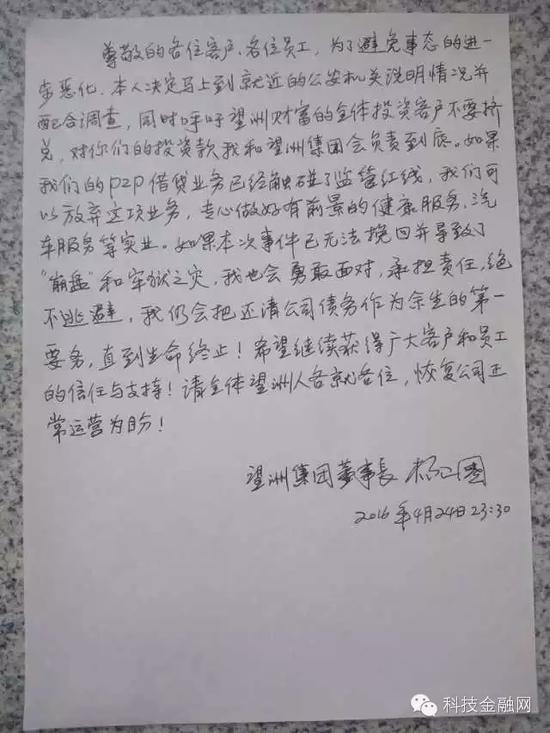 尊敬的各位客户、各位员工，为了避免事态的进一
步恶化，本人决定马上到就近的公安机关说明情况并
配合调查，同时呼吁望洲财富的全体投资客户不要挤
兑，对你们的投资款我和望洲集团会负责到底。如果
我们的P2P借贷业务已经触碰了监管红线，我们可
以放弃这项业务，专心做好有前景的健康服务、汽
车服务等实业。如果本次事件已无法挽回并导致了
“崩盘”和牢狱之灾，我也会勇敢面对，承担责任，绝
不逃避，我仍会把还清公司债务作为余生的第一
要务，直到生命终止！希望继续获得广大客户和员工
的信任与支持！请全体望洲人各就各位，恢复公司正
常运营为盼！
望洲集团董事长 杨卫国
2016年4月24日 23:30
科技金融网